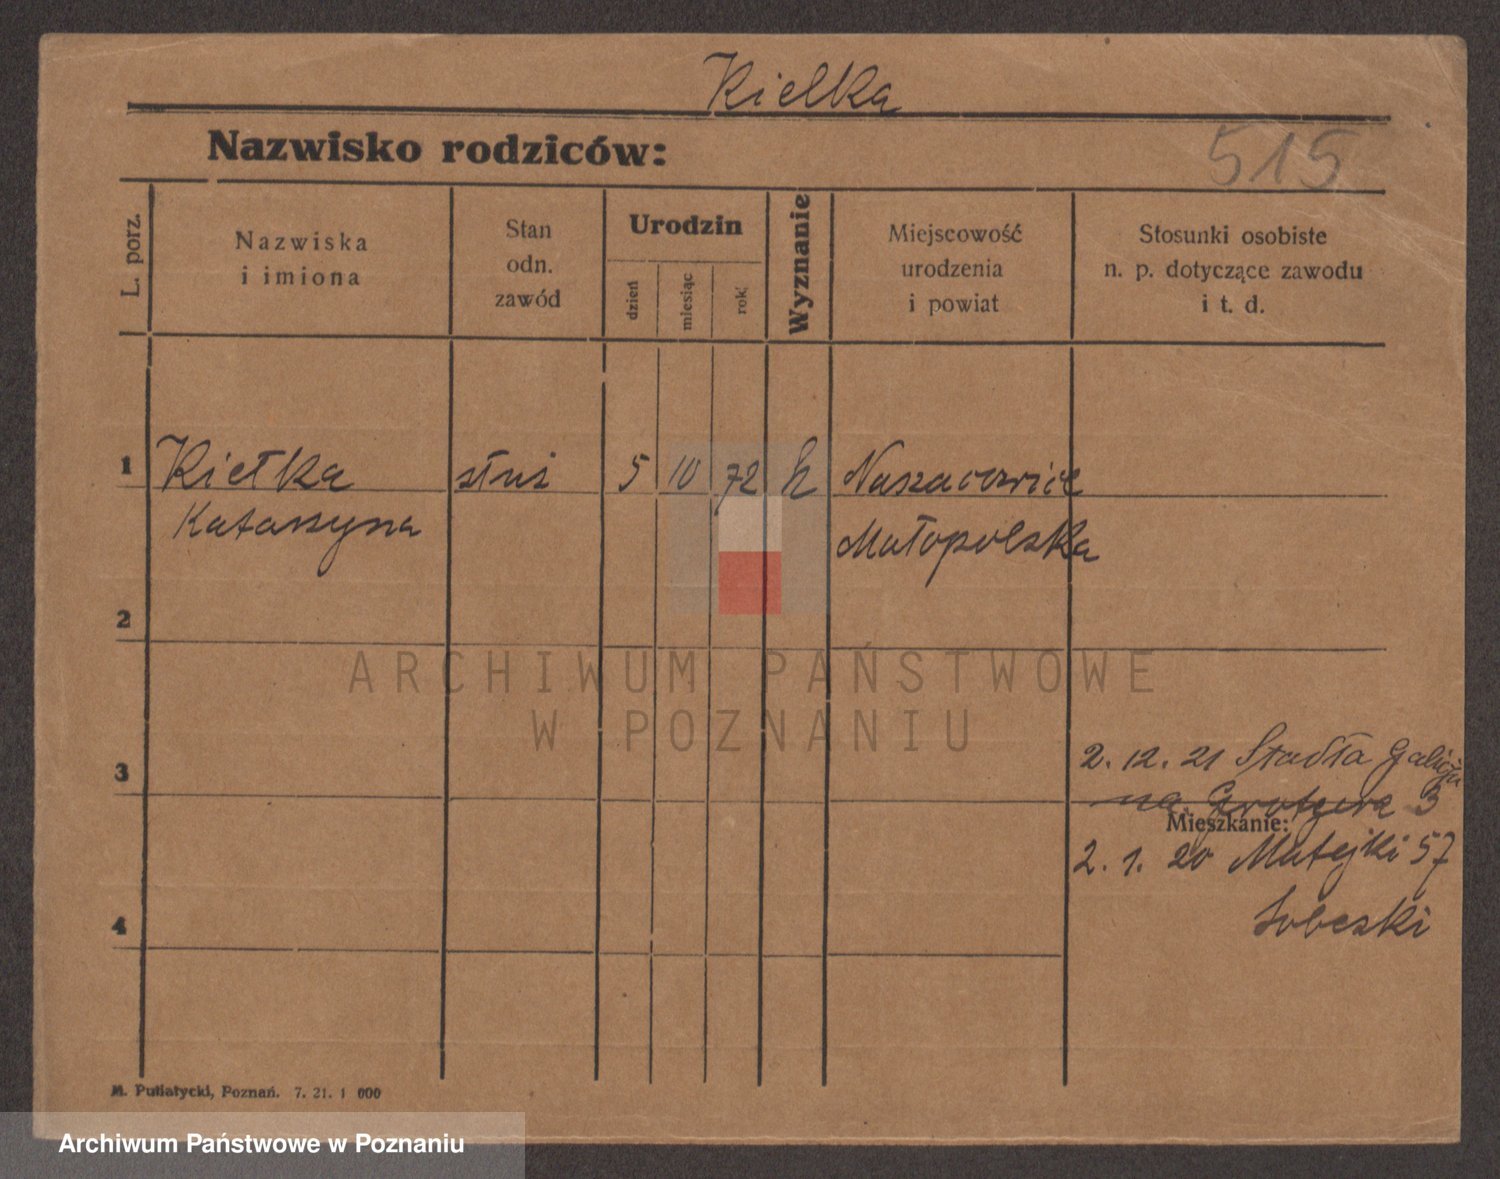 Kielka
Nazwisko rodziców:
515
L. porz.
Nazwiska
i imiona
Stan
odn.
zawód
Urodzin
dzień
miesiąc
rok
Wyznanie
Miejscowość
urodzenia
i powiat
Stosunki osobiste
n. p. dotyczące zawodu
i t. d.
1 Kiełka służ 5 10 72 k Naszacowice
Katarzyna Małopolska
2
ARCHIWUM PAŃSTWOWE
W POZNANIU
3
2. 12. 21 Stadła Galicja
na 3
Mieszkanie:
2. 1. 20 Matejki 57
4
Sobeski
M. Putiatycki, Poznań. 7. 21. 1 000
Archiwum Państwowe w Poznaniu